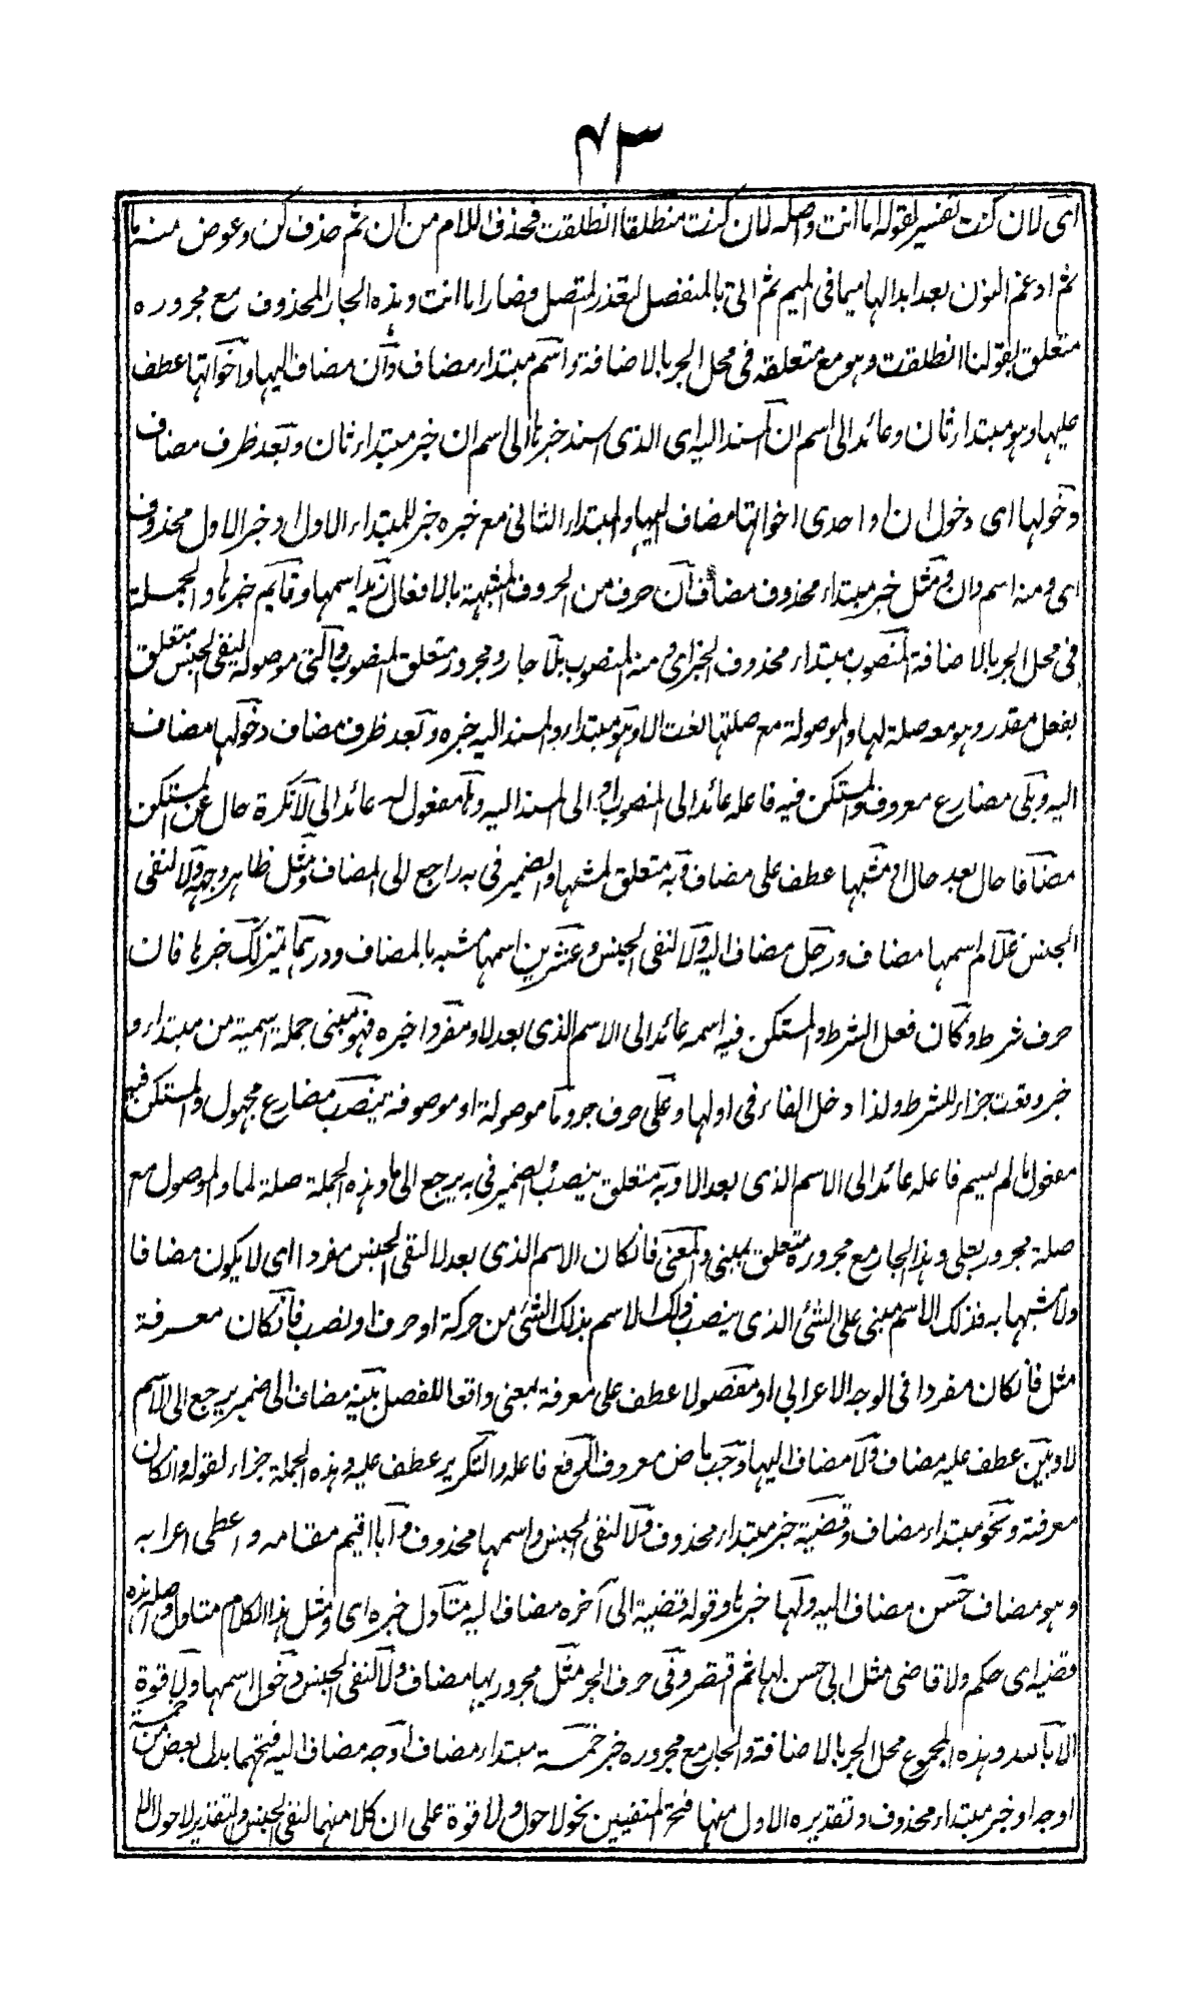 ٤٣
ای لان کنت تفسیر لقوله اما انت واصله لان کنت منطلقا انطلقت فحذف اللام من ان ثم حذف کن وعوض منه ما
ثم ادغم النون بعد ابدالها میما فی المیم ثم اتی بالمنفصل لتعذر المتصل فصار اما انت وهذه الجار المحذوف مع مجروره
متعلق بقولنا انطلقت وهو مع متعلقه فی محل الجر بالاضافة واسم مبتداء مضاف وان مضاف الیها واخواتها عطف
علیها وهو مبتداء ثان وعائد الی اسم ان المسند الیه ای الذی اسند خبرها الی اسم ان خبر مبتداء ثان وبعد ظرف مضاف
دخولها ای دخول ان او احدی اخواتها مضاف الیها والمبتداء الثانی مع خبره خبر للمبتداء الاول او خبر الاول محذوف
ای ومنه اسم وان ومثل خبر مبتداء محذوف مضاف ان حرف من الحروف المشبهة بالافعال زید اسمها وقایم خبرها والجملة
فی محل الجر بالاضافة المنصوب مبتداء محذوف الخبر ای ومنه المنصوب بلا جار ومجرور متعلق المنصوب والتی موصولة لنفی الجنس متعلق
بفعل مقدر وهو معه صلة لها والموصولة مع صلتها نعت الا وهو مبتداء والمسند الیه خبره وبعد ظرف مضاف دخولها مضاف
الیه ویلی مضارع معروف والمستکن فیه فاعله عائد الی المنصوب او الی المسند الیه وها مفعول له عائد الی لا نکرة حال عن المستکن
مضافا حال بعد حال او مشبها عطف علی مضاف وبه متعلق لمشبها والضمیر فی به راجع الی المضاف ومثل ظاهر وجهه ولا لنفی
الجنس غلام اسمها مضاف ورجل مضاف الیه ولا لنفی الجنس وعشرین اسمها مشبه بالمضاف ودرهما تمیز لک خبرها فان
حرف شرط وکان فعل الشرط والمستکن فیه اسمه عائد الی الاسم الذی بعد لا ومفردا خبره فهو مبنی جملة اسمیة من مبتداء و
خبر وقعت جزاء للشرط ولذا دخل الفاء فی اولها وعلی حرف جر وما موصولة او موصوفة ینصب مضارع مجهول والمستکن فیه
مفعول ما لم یسم فاعله عائد الی الاسم الذی بعد الا وبه متعلق ینصب والضمیر فی به یرجع الی ما وهذه الجملة صلة لما والموصول مع
صلة مجرور بعلی وهذا الجار مع مجروره متعلق بمبنی والمعنی فان کان الاسم الذی بعد لا النفی الجنس مفردا ای لا یکون مضافا
ولا مشبها به فذلک الاسم مبنی علی الشئ الذی ینصب ذلک الاسم بذلک الشئ من حرکة او حرف او نصب فان کان معرفة
مثل فان کان مفردا فی الوجه الاعرابی او مفصولا عطف علی معرفة بمعنی واقعا للفصل بینه مضاف الی ضمیر یرجع الی الاسم
لا وبین عطف علیه مضاف ولا مضاف الیها وجب ماض معروف الرفع فاعله والتکریر عطف علیه وهذه الجملة جزاء لقوله وان کان
معرفة ونحو مبتداء مضاف وقضیة خبر مبتداء محذوف ولا لنفی الجنس واسمها محذوف وابا اقیم مقامه واعطی اعرابه
وهو مضاف حسن مضاف الیه ولها خبرها وقوله قضیة الی آخره مضاف الیه متاول خبره ای ومثل هذا الکلام متاول واصله هذه
قضیة ای حکم ولا قاضی مثل ابی حسن لها ثم اقتصر وفی حرف الجر مثل مجرور بها مضاف ولا لنفی الجنس وحول اسمها ولا قوة
الا بالله وهذه المجموع محل الجر بالاضافة والجار مع مجروره خبر خمسة مبتداء مضاف اوجه مضاف الیه فتحهما بدل بعض من خمسة
اوجه او خبر مبتداء محذوف وتقدیره الاول منها فتح المنفیین نحو لا حول ولا قوة علی ان کلا منهما لنفی الجنس والتقدیر لا حول الا